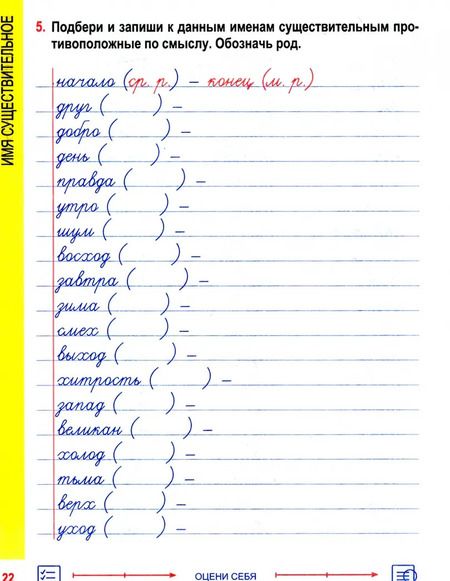 ИМЯ СУЩЕСТВИТЕЛЬНОЕ
5. Подбери и запиши к данным именам существительным про-
тивоположные по смыслу. Обозначь род.
начало (ср. р.) – конец (м. р.)
друг (        ) –
добро (        ) –
день (        ) –
правда (        ) –
утро (        ) –
шум (        ) –
восход (        ) –
завтра (        ) –
зима (        ) –
смех (        ) –
выход (        ) –
хитрость (        ) –
запад (        ) –
великан (        ) –
холод (        ) –
тьма (        ) –
верх (        ) –
уход (        ) –
22
ОЦЕНИ СЕБЯ